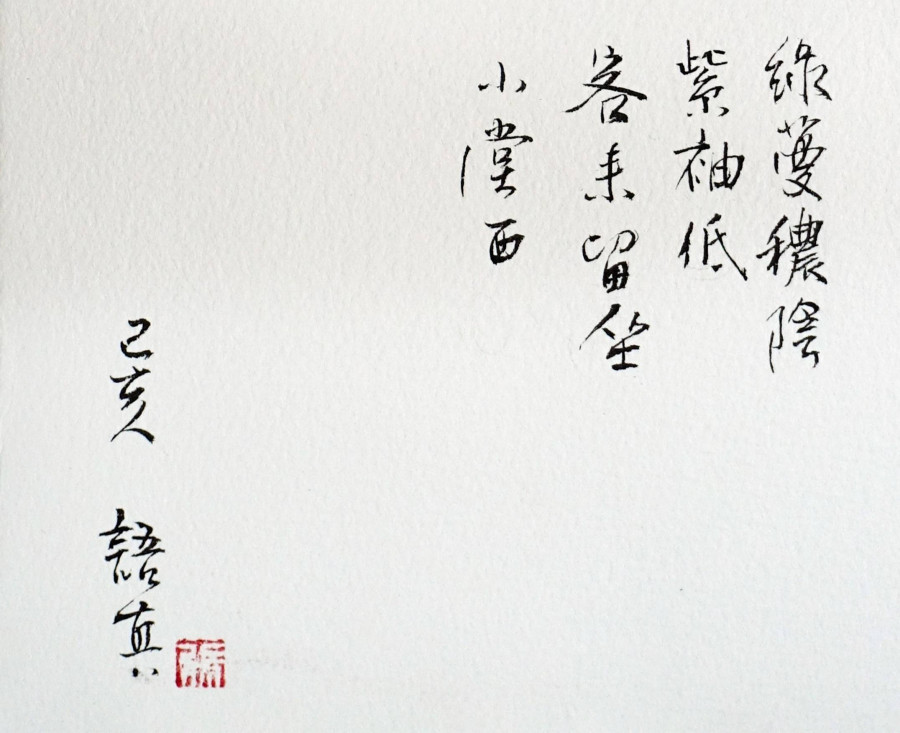 綠蔓穠陰
紫袖低
客来留坐
小堂西
己亥 語真
張